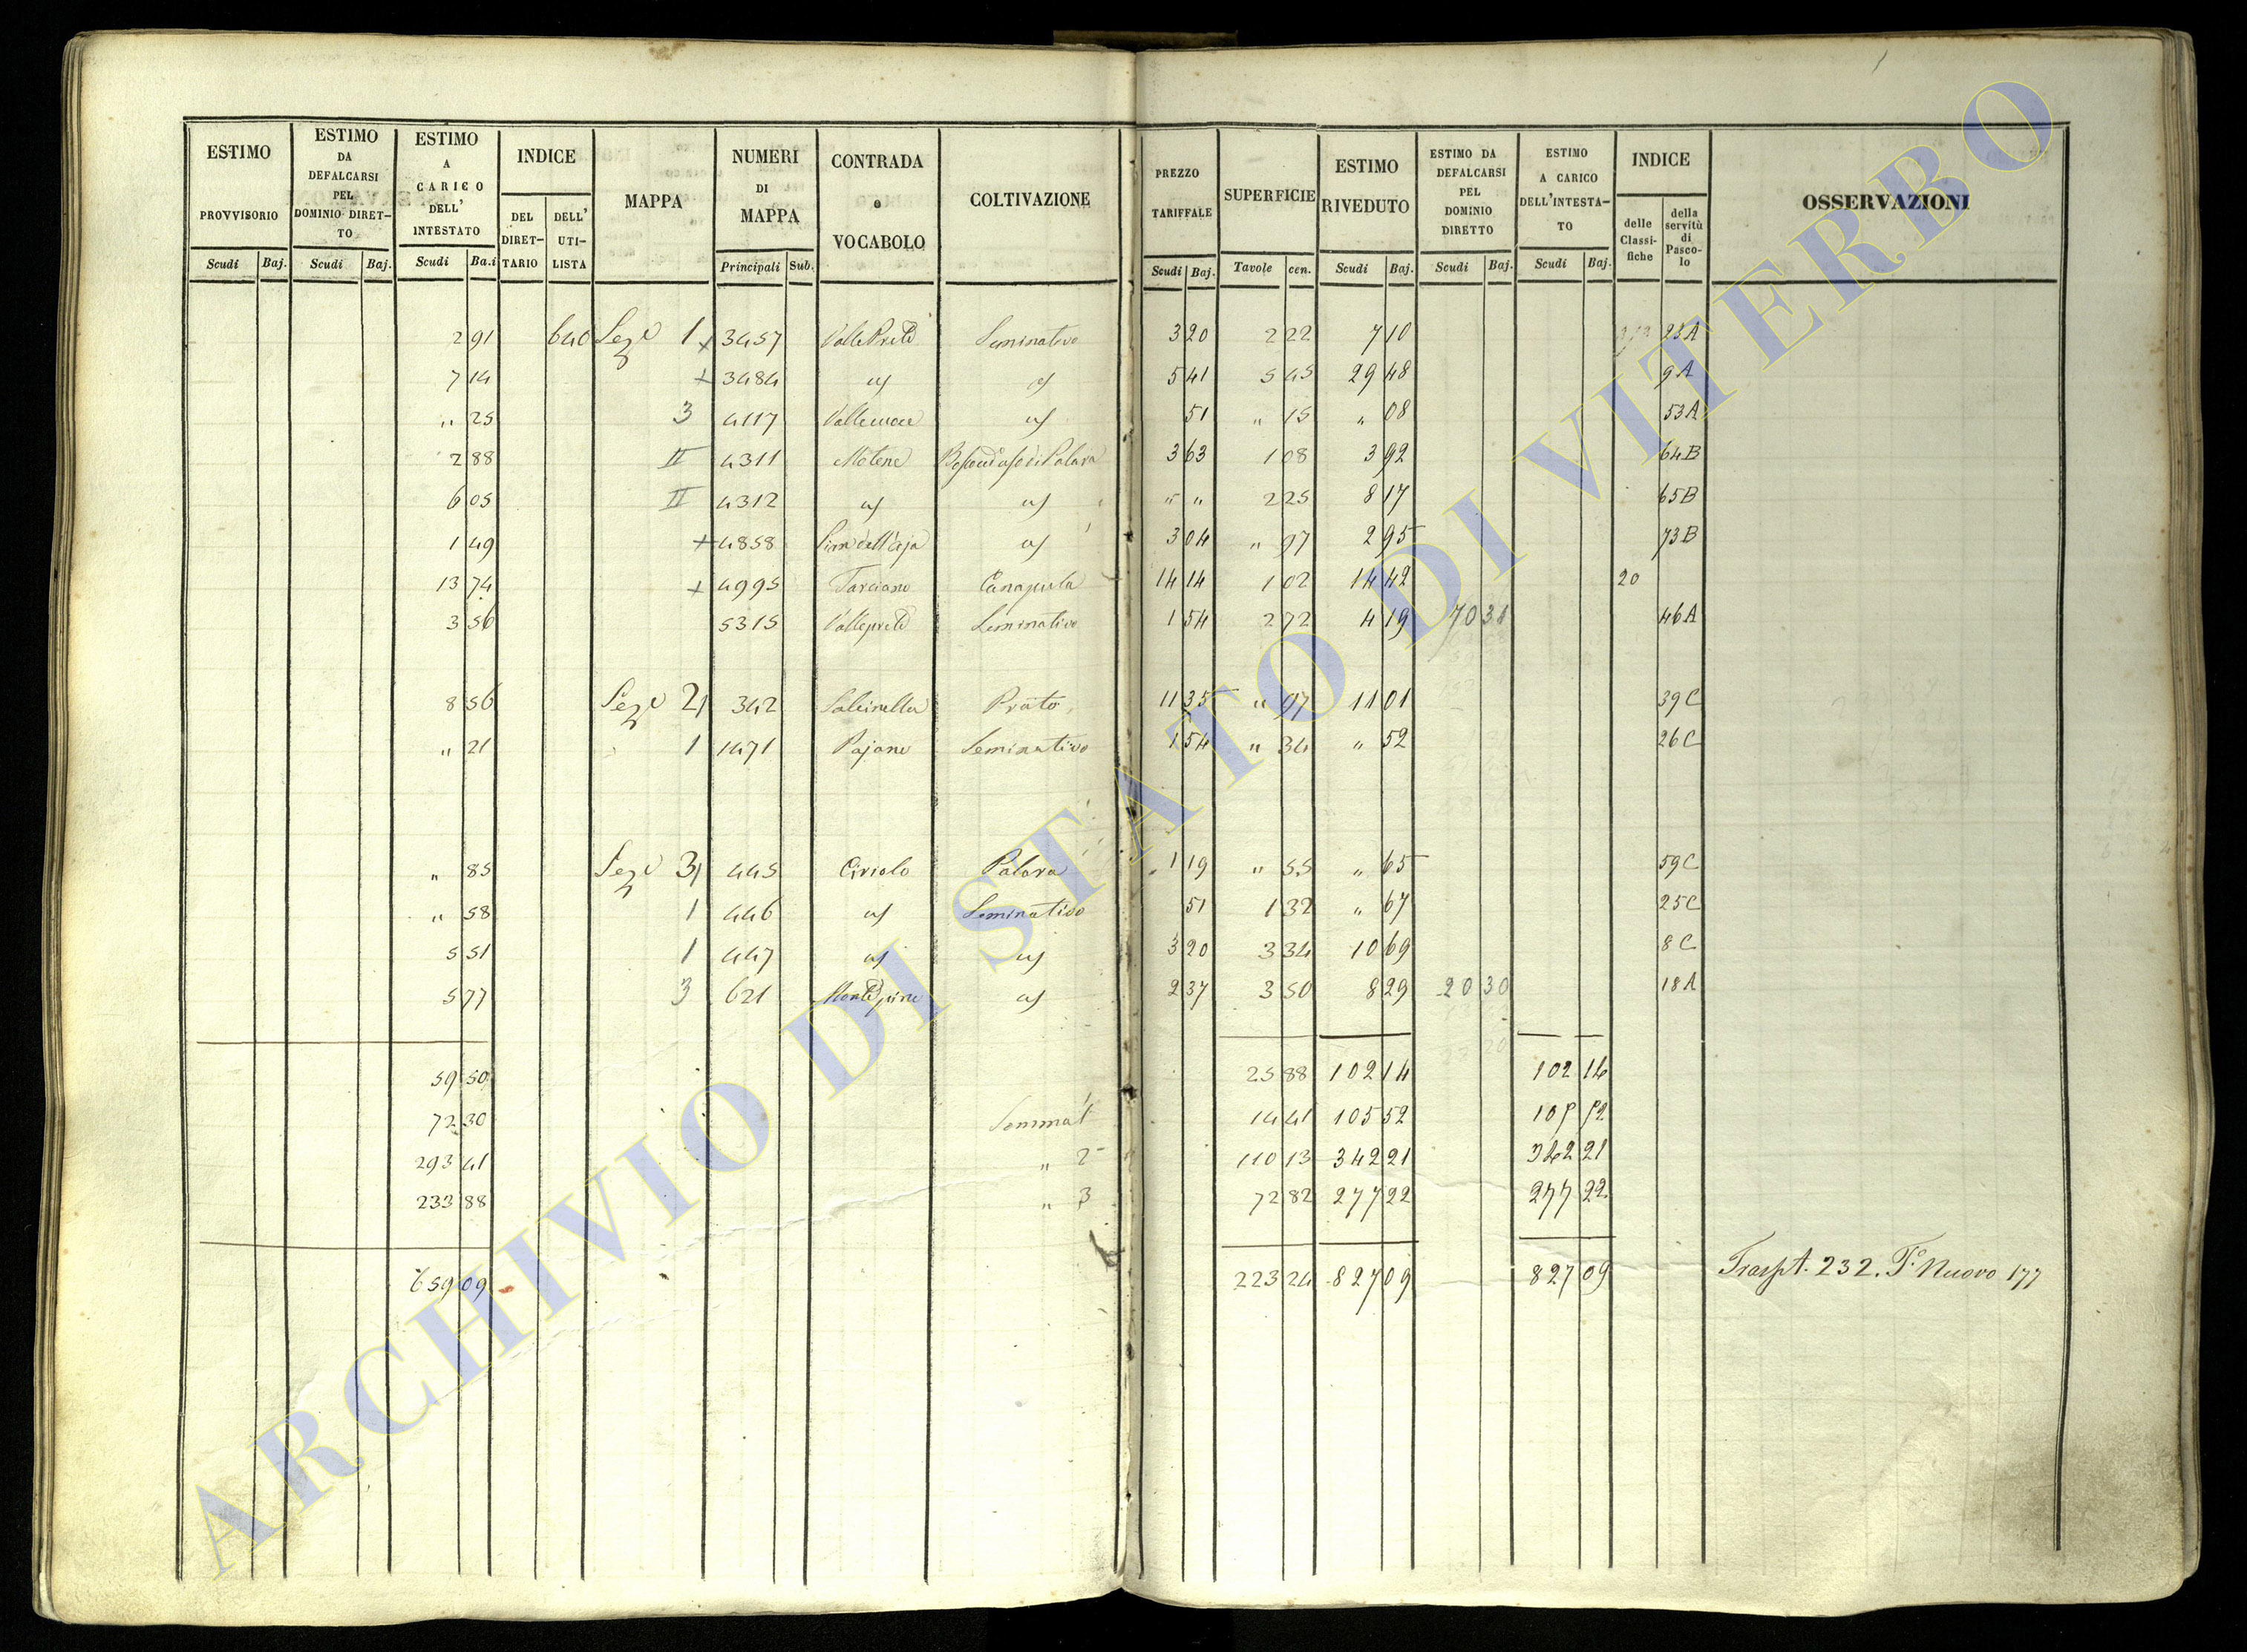 ESTIMO PROVVISORIO | ESTIMO DA DEFALCARSI PEL DOMINIO DIRET-TO | ESTIMO A CARICO DELL' INTESTATO | INDICE | MAPPA | NUMERI DI MAPPA | CONTRADA o VOCABOLO | COLTIVAZIONE | PREZZO TARIFFALE | SUPERFICIE | ESTIMO RIVEDUTO | ESTIMO DA DEFALCARSI PEL DOMINIO DIRETTO | ESTIMO A CARICO DELL'INTESTA-TO | INDICE | OSSERVAZIONI
DEL DIRET-TARIO | DELL' UTI-LISTA | delle Classi-fiche | della servitù di Pasco-lo
Scudi | Baj. | Scudi | Baj. | Scudi | Ba.i | Principali | Sub. | Scudi | Baj. | Tavole | cen. | Scudi | Baj. | Scudi | Baj. | Scudi | Baj.
2 91 | 640 | Seze 1 | + 3457 | Seminativo | 3 20 | 2 22 | 7 10 | 23A
7 14 | + 3484 | a/ | a/ | 5 41 | 5 45 | 29 48 | 9A
" 25 | 3 | 4117 | a/ | 51 | " 15 | " 08 | 53A
2 88 | II | 4311 | 3 63 | 1 08 | 3 92 | 64B
6 05 | II | 4312 | a/ | a/ | " " | 2 25 | 8 17 | 65B
1 49 | + 4858 | a/ | 3 04 | " 97 | 2 95 | 73B
13 74 | + 4995 | Tarciano | Canapula | 14 14 | 1 02 | 14 42 | 20
3 56 | 5315 | Seminativo | 1 54 | 2 72 | 4 19 | 70 31 | 46A
8 56 | Seze 2 | 342 | Salcinella | Prato | 11 35 | " 97 | 11 01 | 39C
" 21 | 1 | 1471 | Pajano | Seminativo | 1 54 | " 34 | " 52 | 26C
" 85 | Seze 3 | 445 | Ciriolo | Palara | 1 19 | " 55 | " 65 | 59C
" 58 | 1 | 446 | a/ | Seminativo | 51 | 1 32 | " 67 | 25C
5 51 | 1 | 447 | a/ | a/ | 3 20 | 3 34 | 10 69 | 8C
5 77 | 3 | 621 | a/ | 2 37 | 3 50 | 8 29 | 20 30 | 18A
59 50 | 25 88 | 102 14 | 102 14
72 30 | 14 41 | 105 52 | 105 52
293 41 | " 2 | 110 13 | 342 21 | 342 21
233 88 | " 3 | 72 82 | 277 22 | 277 22
659 09 | 223 24 | 827 09 | 827 09 | Traspt. 232. F.º Nuovo 177
ARCHIVIO DI STATO DI VITERBO